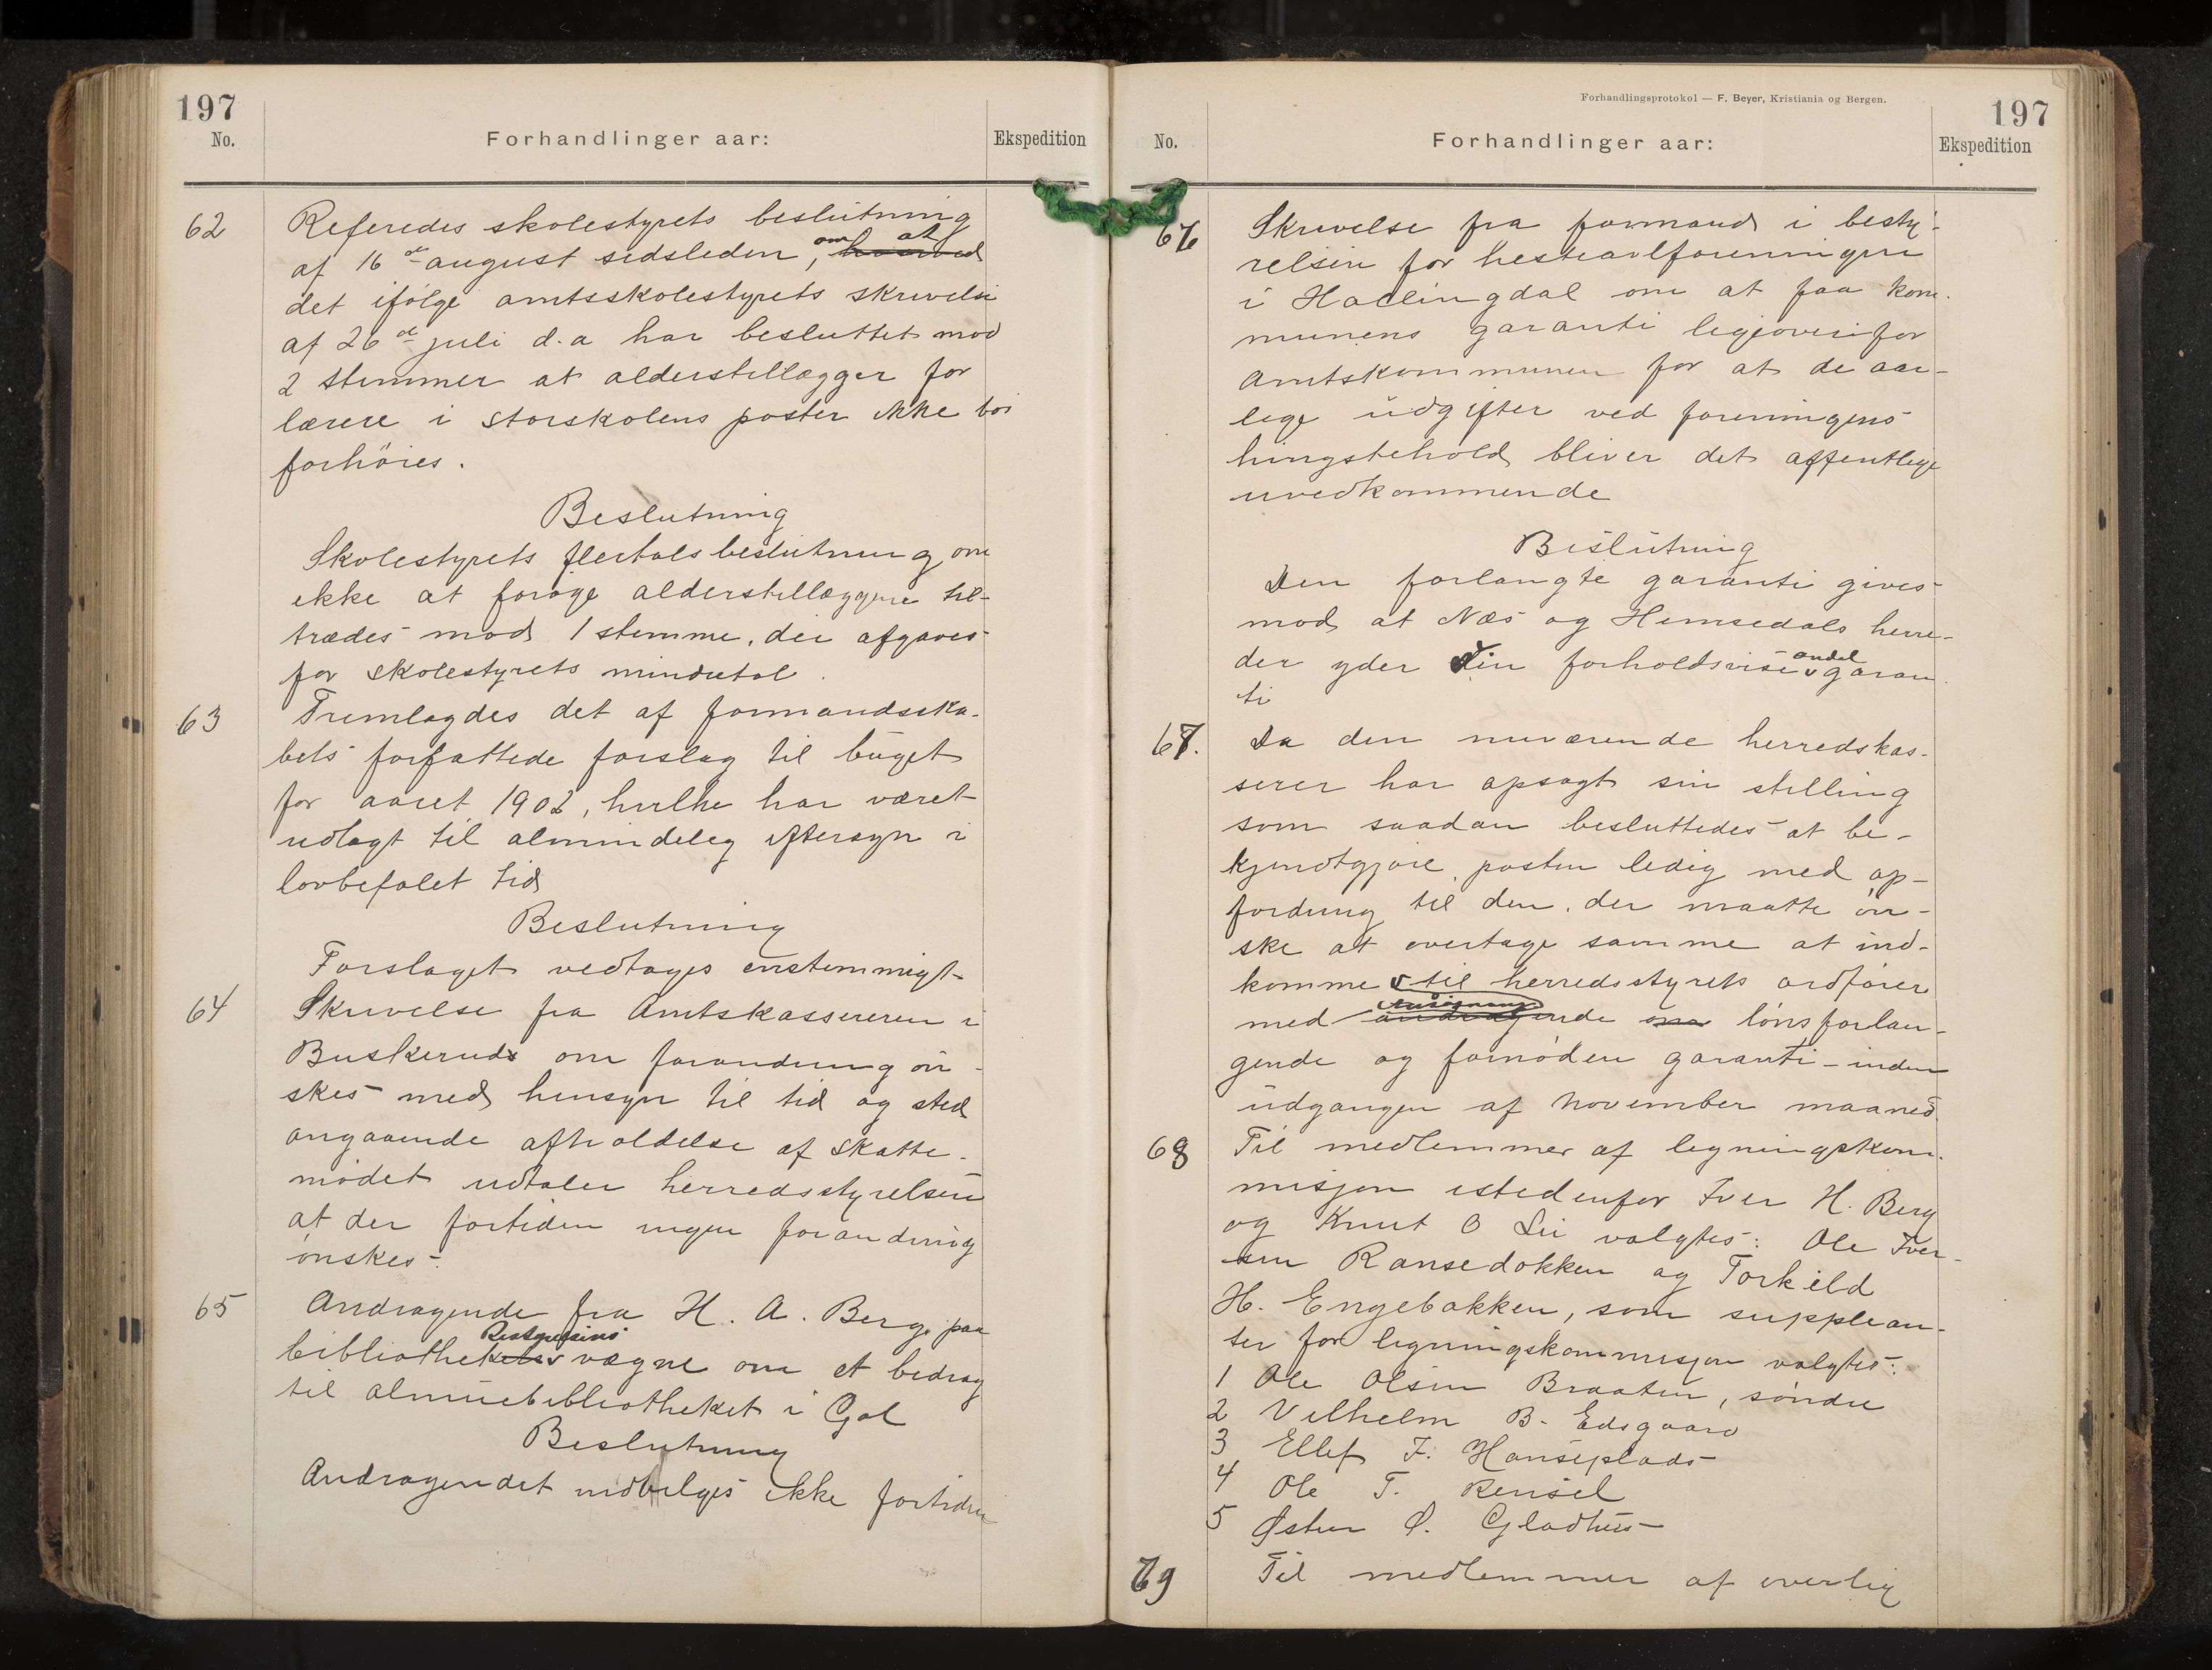 197
No.
Forhandlinger aar:
Ekspedition
62
Referedes skolestyrets beslutning
af 16de august sidsleden, om at
det ifølge amtsskolestyrets skrivelse
af 26de juli d.a har besluttet mod
2 stemmer at alderstillægger for
lærere i storskolens poster ikke bør
forhöies.
Beslutning
Skolestyrets flertalsbeslutning om
ikke at forøge alderstillæggene til-
trædes mod 1 stemme, der afgaves
for skolestyrets mindretal.
63
Fremlagdes det af formandsska-
bets forfattede forslag til buget
for aaret 1902, hvilke har været
udlagt til almindeleg eftersyn i
lovbefalet tid
Beslutning
Forslaget vedtages enstemmigt
64
Skrivelse fra Amtskassereren i
Buskerud om forandring øn-
skes med hensyn til tid og sted
angaaende afholdelse af skatte-
mödet udtaler herredsstyrelsen
at der fortiden ingen forandring
ønskes.
65
Andragende fra H. A. Berg paa
bibliothek Bestyrelsens vægne om et bedrag
til almuebibliotheket i Gol
Beslutning
Andragendet indvilges ikke fortiden
Forhandlingsprotokol — F. Beyer, Kristiania og Bergen.
197
No.
Forhandlinger aar:
Ekspedition
66
Skrivelse fra formand i besty-
relsen for hesteavlforeningen
i Hallingdal om at faa kom-
munens garanti ligeoverfor
Amtskommunen for at de aar-
lige udgifter ved foreningens
hingstehold bliver det offentlige
uvedkommende
Beslutning
Den forlangte garanti gives
mod at Næs og Hemsedals herre-
der yder sin forholdsvise andel garan-
ti
67.
Da den nuværende herredskas-
serer har opsagt sin stilling
som saadan besluttedes at be-
kjendtgjøre posten ledig med op-
fordring til den, der maatte øn-
ske at overtage samme at ind-
komme til herredsstyrets ordfører
med ansøgning lønsforlan-
gende og fornøden garanti – inden
udgangen af november maaned.
68
Til medlemmer af ligningskom-
misjon istedenfor Iver H. Berg
og Knut O Lii valgtes: Ole Iver-
sen Ransedokken og Torkild
H. Engebakken, som supplean-
ter for ligningskommisjon valgtes:
1 Ole Olsen Braaten, søndre
2 Vilhelm B. Eidsgaard
3 Ellef I. Hanseplads
4 Ole T. Rensel
5 Østen O. Gladhus
69
Til medlemmer af overlig